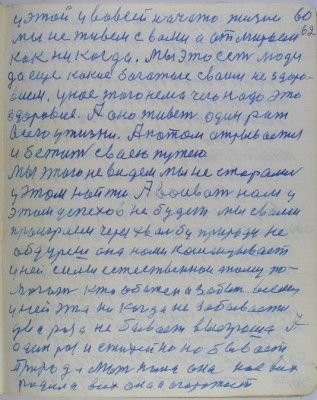 у этой у вовсей начато жизни 60
мы не живем с вами а отмираем 62
как никогда. Мы это есть люди
да еще какие богатые своим не здоро-
вием, у нас этого нема чего надо это
здоровие. А оно живет один раз
всего у жизни. А потом отрывается
и бежит своею путею
мы этого не видем мы не старались
у этом найти А воевать нам у
этом успехов не будет мы с вами
проиграем через хвальбу природу не
обдуреш она нами командывает
у ней силы естественные этому по-
могают кто обижен а забыт всему
у ней этя никогда не забывается
два раза не бывает
один раз и стихейно но бывает
Природа мать наша она нас всех
родила всех она и